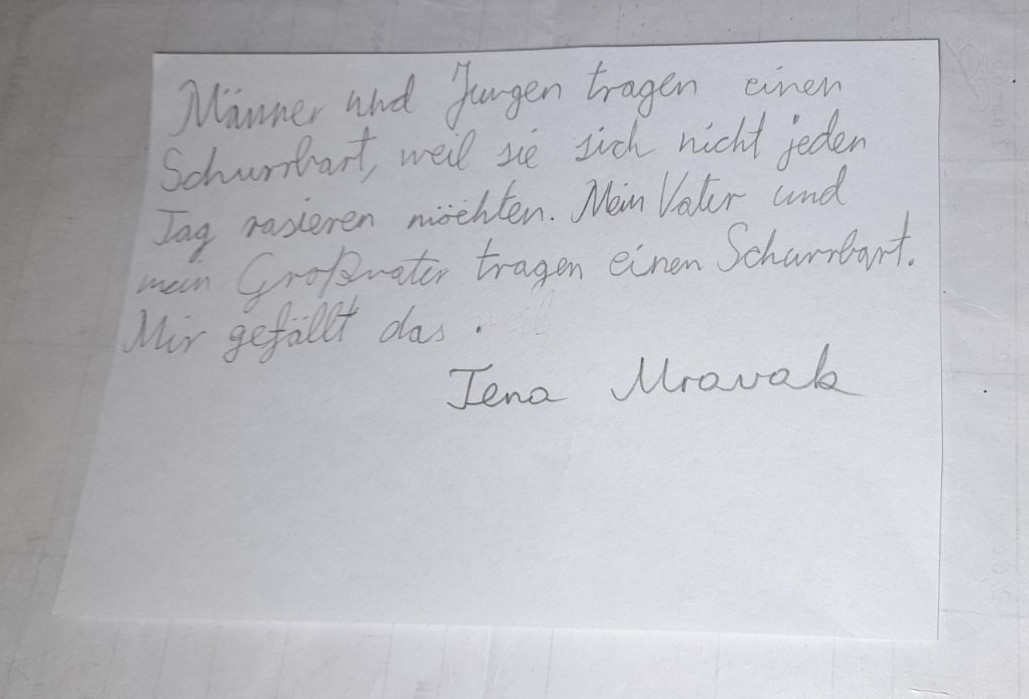 Männer und Jungen tragen einen
Schurrbart, weil sie sich nicht jeden
Tag rasieren möchten. Mein Vater und
mein Großvater tragen einen Schurrbart.
Mir gefällt das.
Jena Mravak